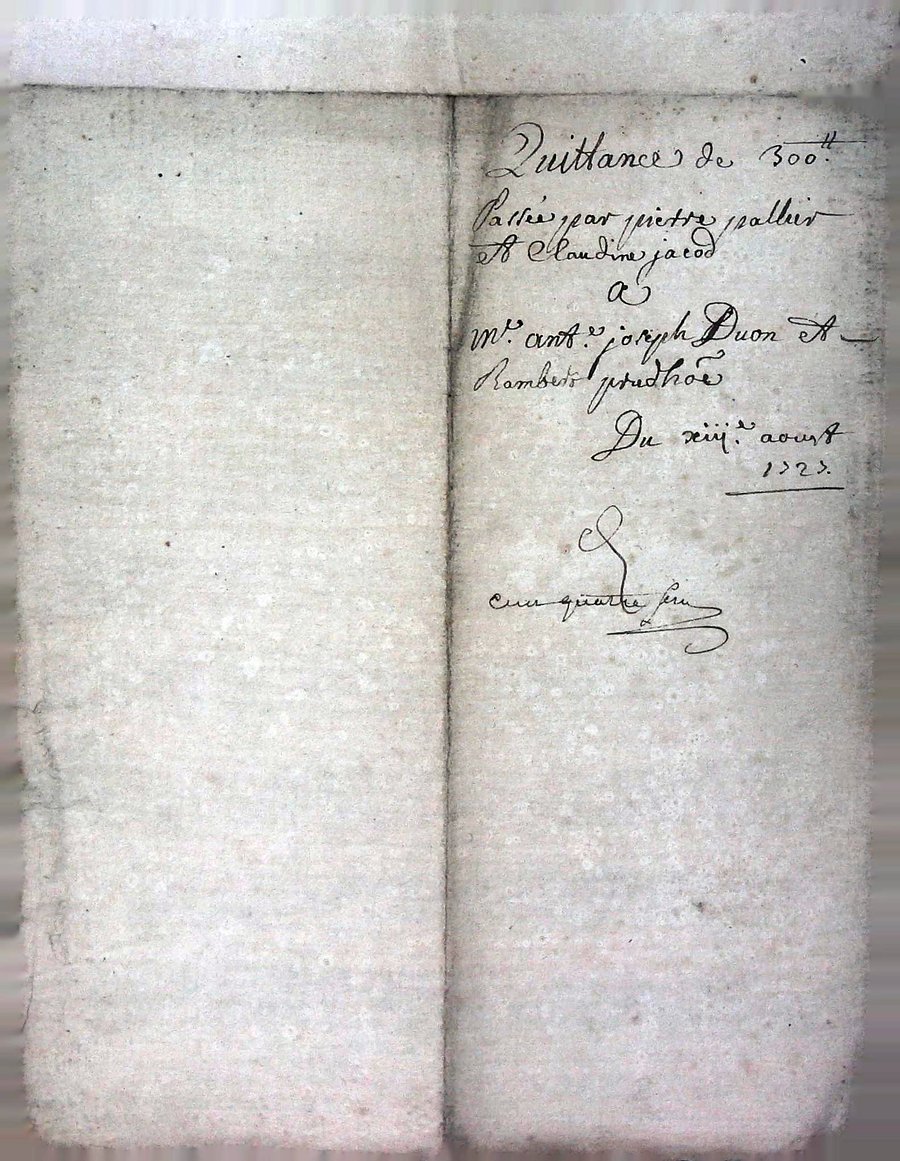 Quittance de 300.ᵗᵗ
Passée par pierre pallier
et Claudine jacod
a
mʳ. antᵉ. joseph Duon et
Rambert prudhoē
Du xiijᵉ. aoust
1727.
quatre